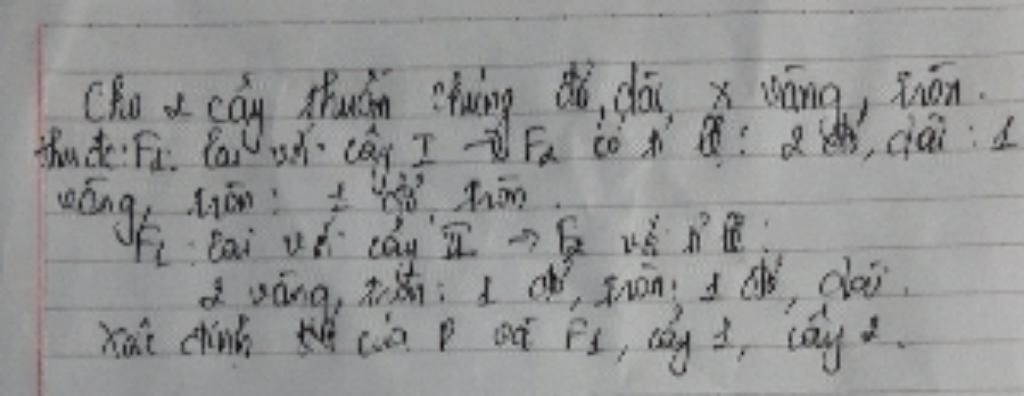 Cho 2 cây thuần chủng đỏ, dài x vàng, tròn.
thu đc: F1. lai với cây I → F2 có tỉ lệ: 2 đỏ, dài: 1
vàng, tròn: 1 đỏ, tròn.
F1 lai với cây II → F2 với tỉ lệ:
2 vàng, tròn: 1 đỏ, tròn: 1 đỏ, dài.
Xác định của P và F1, cây 1, cây 2.